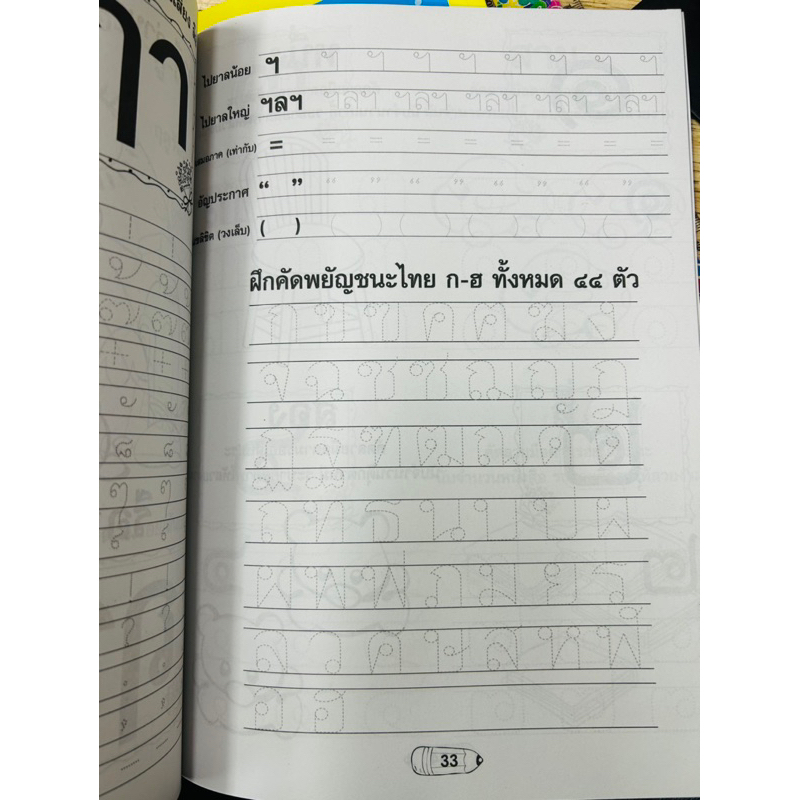 ไปยาลน้อย ฯ ฯ ฯ ฯ ฯ ฯ ฯ ฯ ฯ
ไปยาลใหญ่ ฯลฯ ฯลฯ ฯลฯ ฯลฯ ฯลฯ ฯลฯ
(เท่ากับ) = = = = = = = = =
อัญประกาศ “ ” “ ” “ ” “ ” “ ”
(วงเล็บ) ( )
ฝึกคัดพยัญชนะไทย ก-ฮ ทั้งหมด ๔๔ ตัว
ก ข ฃ ค ฅ ฆ ง
จ ฉ ช ซ ฌ ญ ฎ
ฏ ฐ ฑ ฒ ณ ด ต
ถ ท ธ น บ ป ผ
ฝ พ ฟ ภ ม ย ร
ล ว ศ ษ ส ห ฬ
อ ฮ
33